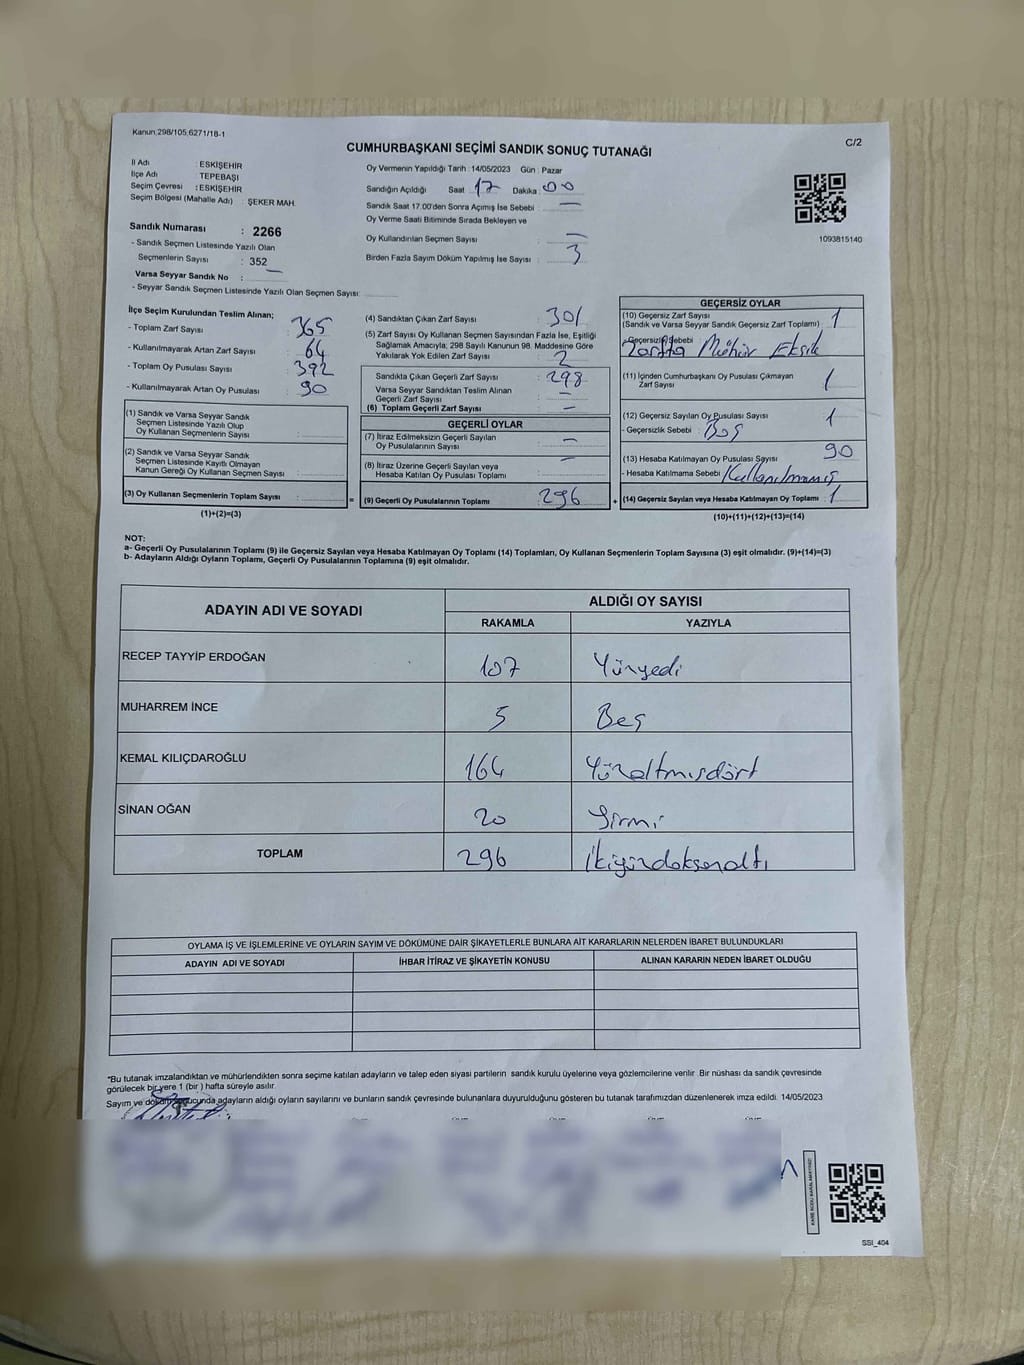 Kanun 298/105 6271/18-1
C/2
CUMHURBAŞKANI SEÇİMİ SANDIK SONUÇ TUTANAĞI
İl Adı : ESKİŞEHİR
İlçe Adı TEPEBAŞI
Seçim Çevresi : ESKİŞEHİR
Seçim Bölgesi (Mahalle Adı) : ŞEKER MAH.
Sandık Numarası : 2266
- Sandık Seçmen Listesinde Yazılı Olan
Seçmenlerin Sayısı : 352
Varsa Seyyar Sandık No : —
- Seyyar Sandık Seçmen Listesinde Yazılı Olan Seçmen Sayısı:
Oy Vermenin Yapıldığı Tarih : 14/05/2023 Gün : Pazar
Sandığın Açıldığı Saat 17 Dakika : 00
Sandık Saat 17.00'den Sonra Açımış İse Sebebi : —
Oy Verme Saati Bitiminde Sırada Bekleyen ve
Oy Kullandırılan Seçmen Sayısı : —
Birden Fazla Sayım Döküm Yapılmış İse Sayısı : 3
1093815140
İlçe Seçim Kurulundan Teslim Alınan;
- Toplam Zarf Sayısı : 365
- Kullanılmayarak Artan Zarf Sayısı : 64
- Toplam Oy Pusulası Sayısı : 392
- Kullanılmayarak Artan Oy Pusulası : 90
(1) Sandık ve Varsa Seyyar Sandık
Seçmen Listesinde Yazılı Olup
Oy Kullanan Seçmenlerin Sayısı :
(2) Sandık ve Varsa Seyyar Sandık
Seçmen Listesinde Kayıtlı Olmayan
Kanun Gereği Oy Kullanan Seçmen Sayısı :
(3) Oy Kullanan Seçmenlerin Toplam Sayısı :
(1)+(2)=(3)
(4) Sandıktan Çıkan Zarf Sayısı : 301
(5) Zarf Sayısı Oy Kullanan Seçmen Sayısından Fazla İse, Eşitliği
Sağlamak Amacıyla; 298 Sayılı Kanunun 98. Maddesine Göre
Yakılarak Yok Edilen Zarf Sayısı : 2
Sandıkta Çıkan Geçerli Zarf Sayısı : 298
Varsa Seyyar Sandıktan Teslim Alınan
Geçerli Zarf Sayısı : —
(6) Toplam Geçerli Zarf Sayısı : —
GEÇERLİ OYLAR
(7) İtiraz Edilmeksizin Geçerli Sayılan
Oy Pusulalarının Sayısı : —
(8) İtiraz Üzerine Geçerli Sayılan veya
Hesaba Katılan Oy Pusulası Toplamı : —
= (9) Geçerli Oy Pusulalarının Toplamı : 296 +
GEÇERSİZ OYLAR
(10) Geçersiz Zarf Sayısı
(Sandık ve Varsa Seyyar Sandık Geçersiz Zarf Toplamı) : 1
- Geçersizlik Sebebi
Zarfta Mühür Eksik
(11) İçinden Cumhurbaşkanı Oy Pusulası Çıkmayan
Zarf Sayısı : 1
(12) Geçersiz Sayılan Oy Pusulası Sayısı : 1
- Geçersizlik Sebebi : Boş
(13) Hesaba Katılmayan Oy Pusulası Sayısı : 90
- Hesaba Katılmama Sebebi : Kullanılmamış
(14) Geçersiz Sayılan veya Hesaba Katılmayan Oy Toplamı : 1
(10)+(11)+(12)+(13)=(14)
NOT:
a- Geçerli Oy Pusulalarının Toplamı (9) ile Geçersiz Sayılan veya Hesaba Katılmayan Oy Toplamı (14) Toplamları, Oy Kullanan Seçmenlerin Toplam Sayısına (3) eşit olmalıdır. (9)+(14)=(3)
b- Adayların Aldığı Oyların Toplamı, Geçerli Oy Pusulalarının Toplamına (9) eşit olmalıdır.
ADAYIN ADI VE SOYADI ALDIĞI OY SAYISI
RAKAMLA YAZIYLA
RECEP TAYYİP ERDOĞAN 107 Yüzyedi
MUHARREM İNCE 5 Beş
KEMAL KILIÇDAROĞLU 164 Yüzaltmışdört
SİNAN OĞAN 20 Yirmi
TOPLAM 296 İkiyüzdoksanaltı
OYLAMA İŞ VE İŞLEMLERİNE VE OYLARIN SAYIM VE DÖKÜMÜNE DAİR ŞİKAYETLERLE BUNLARA AİT KARARLARIN NELERDEN İBARET BULUNDUKLARI
ADAYIN ADI VE SOYADI İHBAR İTİRAZ VE ŞİKAYETİN KONUSU ALINAN KARARIN NEDEN İBARET OLDUĞU
*Bu tutanak imzalandıktan ve mühürlendikten sonra seçime katılan adayların ve talep eden siyasi partilerin sandık kurulu üyelerine veya gözlemcilerine verilir. Bir nüshası da sandık çevresinde
görülecek bir yere 1 (bir ) hafta süreyle asılır.
Sayım ve döküm sonucunda adayların aldığı oyların sayılarını ve bunların sandık çevresinde bulunanlara duyurulduğunu gösteren bu tutanak tarafımızdan düzenlenerek imza edildi. 14/05/2023
SSI_404